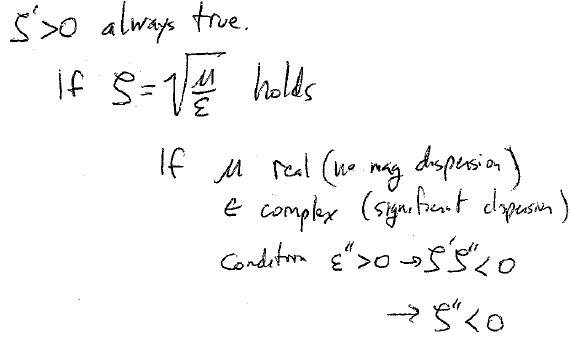 ζ'>0 always true.
If ζ = √μ/ε holds
If μ real (no mag dispersion)
ε complex (significant dispersion)
Condition ε">0 → ζ'ζ"<0
→ ζ"<0